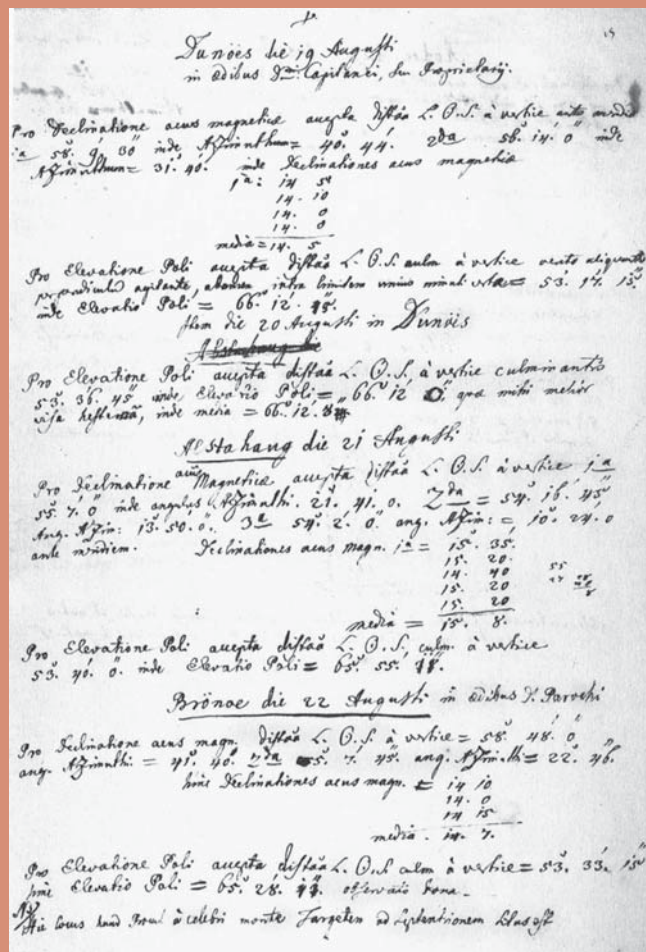 15
Dunöes die 19 Augusti
in ædibus Dni Capitanei, seu Proprietarij.
Pro Declinatione acus magneticæ accepta distãa L. O. S. à vertice ante merid
1a 58. 9. 30 inde Azimuthum = 40. 44. 2da 56. 14. 0 inde
Azimuthum = 31. 40. inde Declinationes acus magneticæ
1a: 14
14. 10
14. 0
14. 0
media = 14. 5
Pro Elevatione Poli accepta distãa L. O. S. culm. à vertice vento aliquanto
perpendiculum agitante, intra limitem unius minuti = 53. 17. 15
inde Elevatio Poli = 66. 12. 15.
Item die 20 Augusti in Dunöis
Pro Elevatione Poli accepta distãa L. O. S. à vertice culminantis
53. 36. 45 inde Elevatio Poli = 66. 12 0. quæ mihi melior
visa hesterna, inde media = 66. 12.
Alstahaug die 21 Augusti
Pro Declinatione acus Magneticæ accepta distãa L. O. S. à vertice 1a
55. 7. 0 inde angulus Azimuthi. 21. 41. 0. 2da = 54. 16. 45
Ang. Azim: 13. 50. 0. 3a 54. 2. 0 ang. Azim: = 10. 24. 0
ante meridiem. Declinationes acus magn. 1a = 15. 35.
15. 20.
14. 40
15. 20
15. 20
media = 15. 8.
Pro Elevatione Poli accepta distãa L. O. S. culm. à vertice
53. 40. 0. inde Elevatio Poli = 65. 55. 18.
Brönöe die 22 Augusti in ædibus D. Parochi
Pro Declinatione acus magn. distãa L. O. S. à vertice = 58. 48. 0
ang. Azimuthi = 41. 40. 2da 55. 7. 45. ang. Azimuthi = 22. 46.
hinc Declinationes acus magn. = 14 10
14. 0
14 15
media. 14. 7.
Pro Elevatione Poli accepta distãa L. O. S culm à vertice = 53. 33. 15
hinc Elevatio Poli = 65. 28. observatio bona.
NB
Hic locus haud procul à celebri monte Torgeten ad Septentrionem situs est